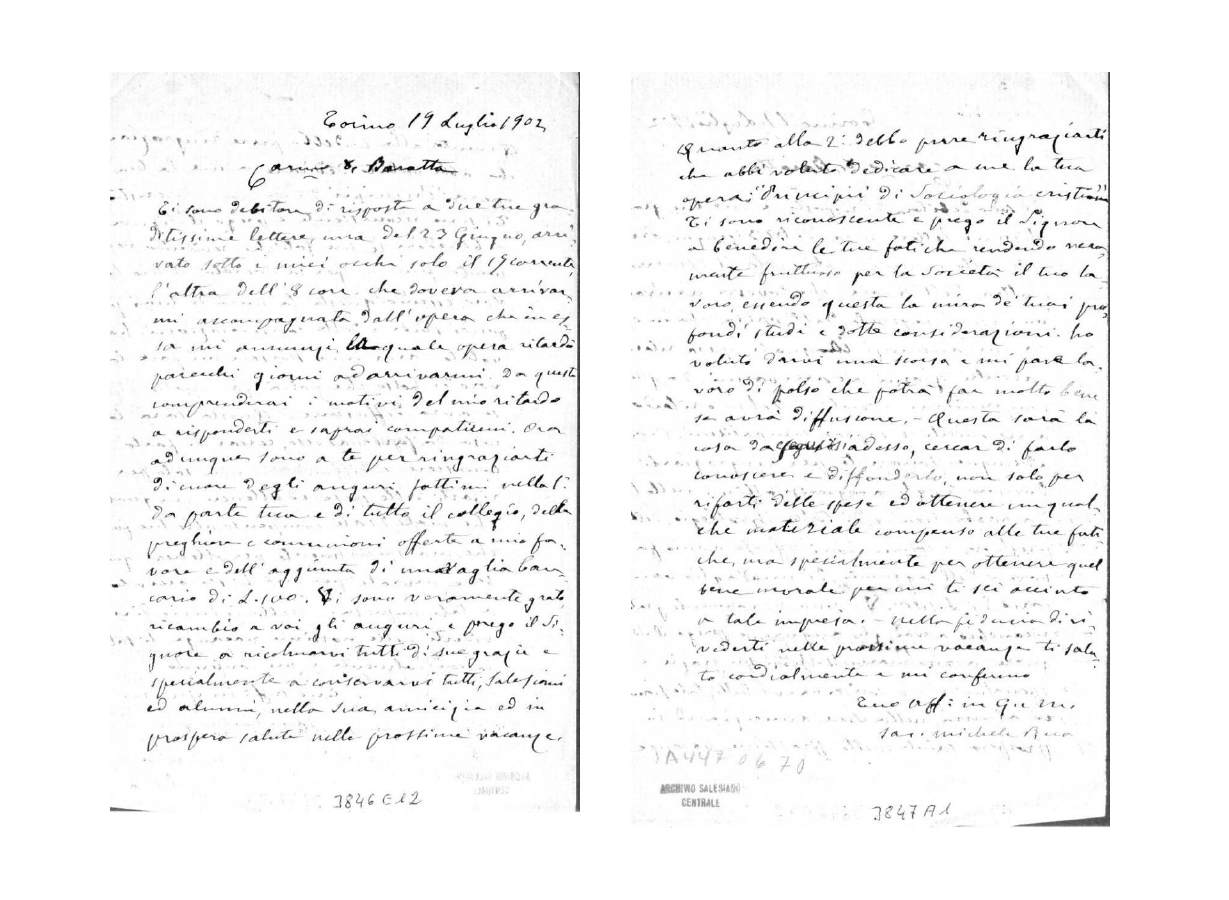 Torino 19 Luglio 1902
Carmo D. Baratta
Ti sono debitore di risposta a due tue gra-
ditissime lettere, una del 23 Giugno, arri-
vato sotto i miei occhi solo il 19 corrente,
l'altra dell'8 corr. che doveva arrivar
mi accompagnata dall'opera che in es-
sa mi annunzi la quale opera ritardò
parecchi giorni ad arrivarmi. Da questo
comprenderai i motivi del mio ritardo
a risponderti e saprai compatirmi. Ora
adunque sono a te per ringraziarti
di cuore degli auguri fattimi nella 1ª
da parte tua e di tutto il collegio, delle
preghiere e comunioni offerte a mio fa-
vore e dell'aggiunta di un vaglia ban-
cario di L. 500. Vi sono veramente grato,
ricambio a voi gli auguri e prego il Si-
gnore a ricolmarvi tutti di sue grazie e
specialmente a conservarvi tutti, Salesiani
ed alunni, nella sua amicizia ed in
prospera salute nelle prossime vacanze.
3846 E12
Quanto alla 2ª debbo pure ringraziarti
che abbi voluto dedicare a me la tua
opera: Principii di Sociologia cristiana
Ti sono riconoscente e prego il Signore
a benedire le tue fatiche rendendo vera-
mente fruttuoso per la Società il tuo la-
voro, essendo questa la mira de' tuoi pro-
fondi studi e dotte considerazioni. Ho
voluto darvi una scorsa e mi pare la-
voro di polso che potrà far molto bene
se avrà diffusione. - Questa sarà la
cosa da adesso, cercar di farlo
conoscere e diffonderlo, non solo per
rifarti delle spese ed ottenere un qual-
che materiale compenso alle tue fati
che, ma specialmente per ottenere quel
bene morale per cui ti sei accinto
a tale impresa. - Nella fiducia di ri-
vederti nelle prossime vacanze ti salu-
to cordialmente e mi confermo
Tuo aff.mo in G. e M.
Sac. Michele Rua
3A447 06 70
ARCHIVIO SALESIANO
CENTRALE
3847 A1